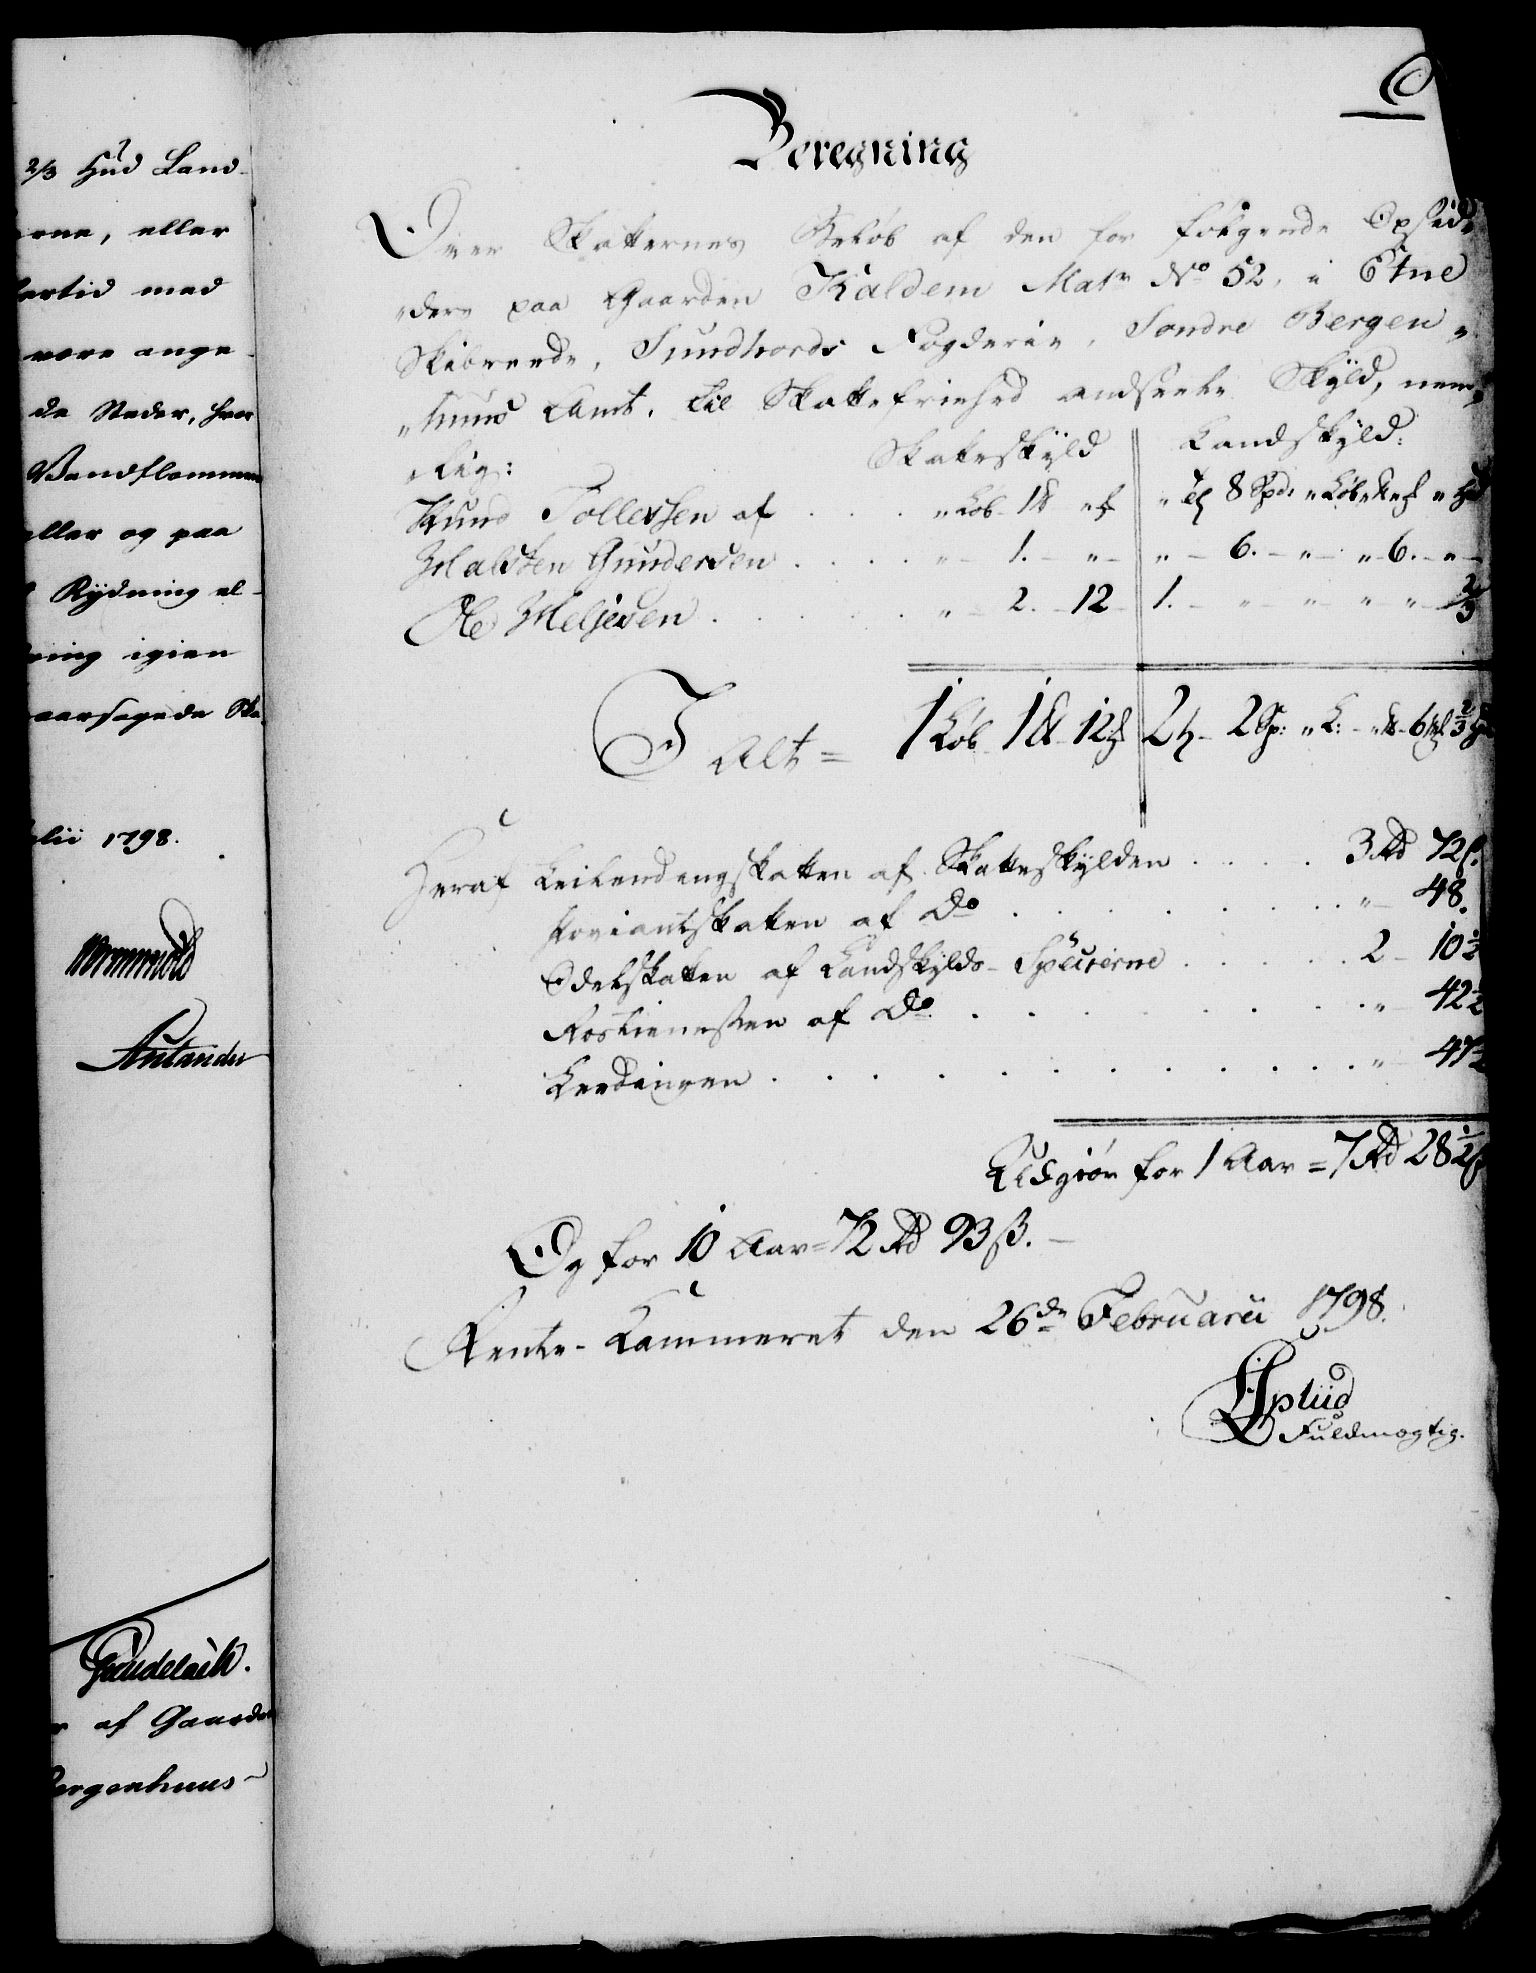 2/3 Hud Land-
rne, eller
ertid med
være ange-
de Steder, hvor
Vandflommen
eller og paa
Rydning el-
ring igien
aarsagede Ska
ulii 1798.
af Gaarden
Bergenhuus
C
Beregning
Over Skatternes Beløb af den for følgende Opsid-
dere paa Gaarden Kaldem Matr No 52, i Etne
Skibreede, Sundhords Fogderie, Søndre Bergen-
huus Amt, til Skattefriehed andsatte Skyld, nem-
lig:
Skatteskyld Landskyld:
Knud Tollevsen af . . . . " Løb 1 " " 8 Spd: " Løb " " Hud
Halsten Gundersen . . . . " - 1. - " - " - 6. - " - " - 6. - " -
Ole Helјesen . . . . . " - 2. - 12 1. - " - " - " - " - 2/3
I Alt = 1 Løb 1 12 2 - 2 Sp: " L: - " - 6 2/3
Heraf Leilendingskatten af Skatteskylden . . . . 3 Rd 72 ß.
Proviantskatten af Do . . . . . . . . " - 48.
Odelskatten af Landskylds-Specierne . . . . . 2 - 10 1/2
Rostienesten af Do . . . . . . . . " - 42 1/2
Leedingen . . . . . . . . . . . . " - 47 1/2
Udgiør for 1 Aar = 7 Rd 28 1/2 ß
Og for 10 Aar = 72 Rd 93 ß. -
Rente-Kammeret den 26de Februarii 1798.
Fuldmægtig.